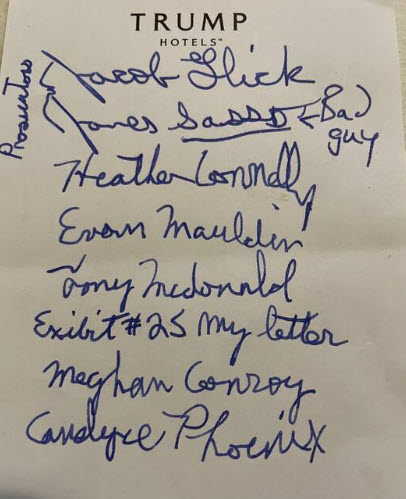 TRUMP
HOTELS™
Prosecutors
Jacob Glick
James Sasso ← Bad guy
Heather Connelly
Evan Mauldin
Tony Mcdonald
Exibit #25 My letter
Meghan Conroy
Candyce Phoenix